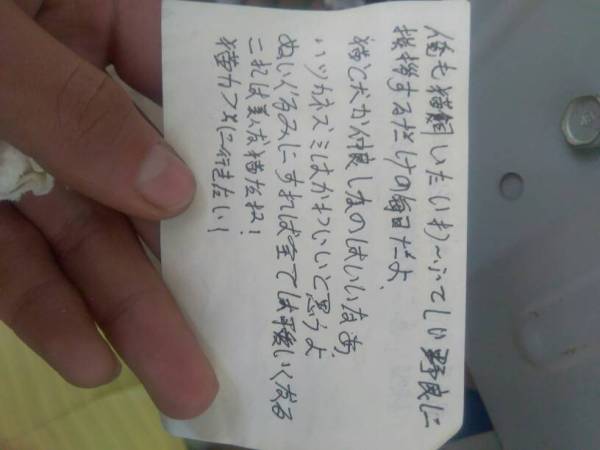 俺も猫飼いたいわ〜ふてしい野良に
挨拶するだけの毎日だよ
猫と犬が仲良しなのはいいなあ
ハツカネズミはかわいいと思うよ
ぬいぐるみにすれば全ては可愛くなる
これは変な猫だね!
猫カフェに行きたい!